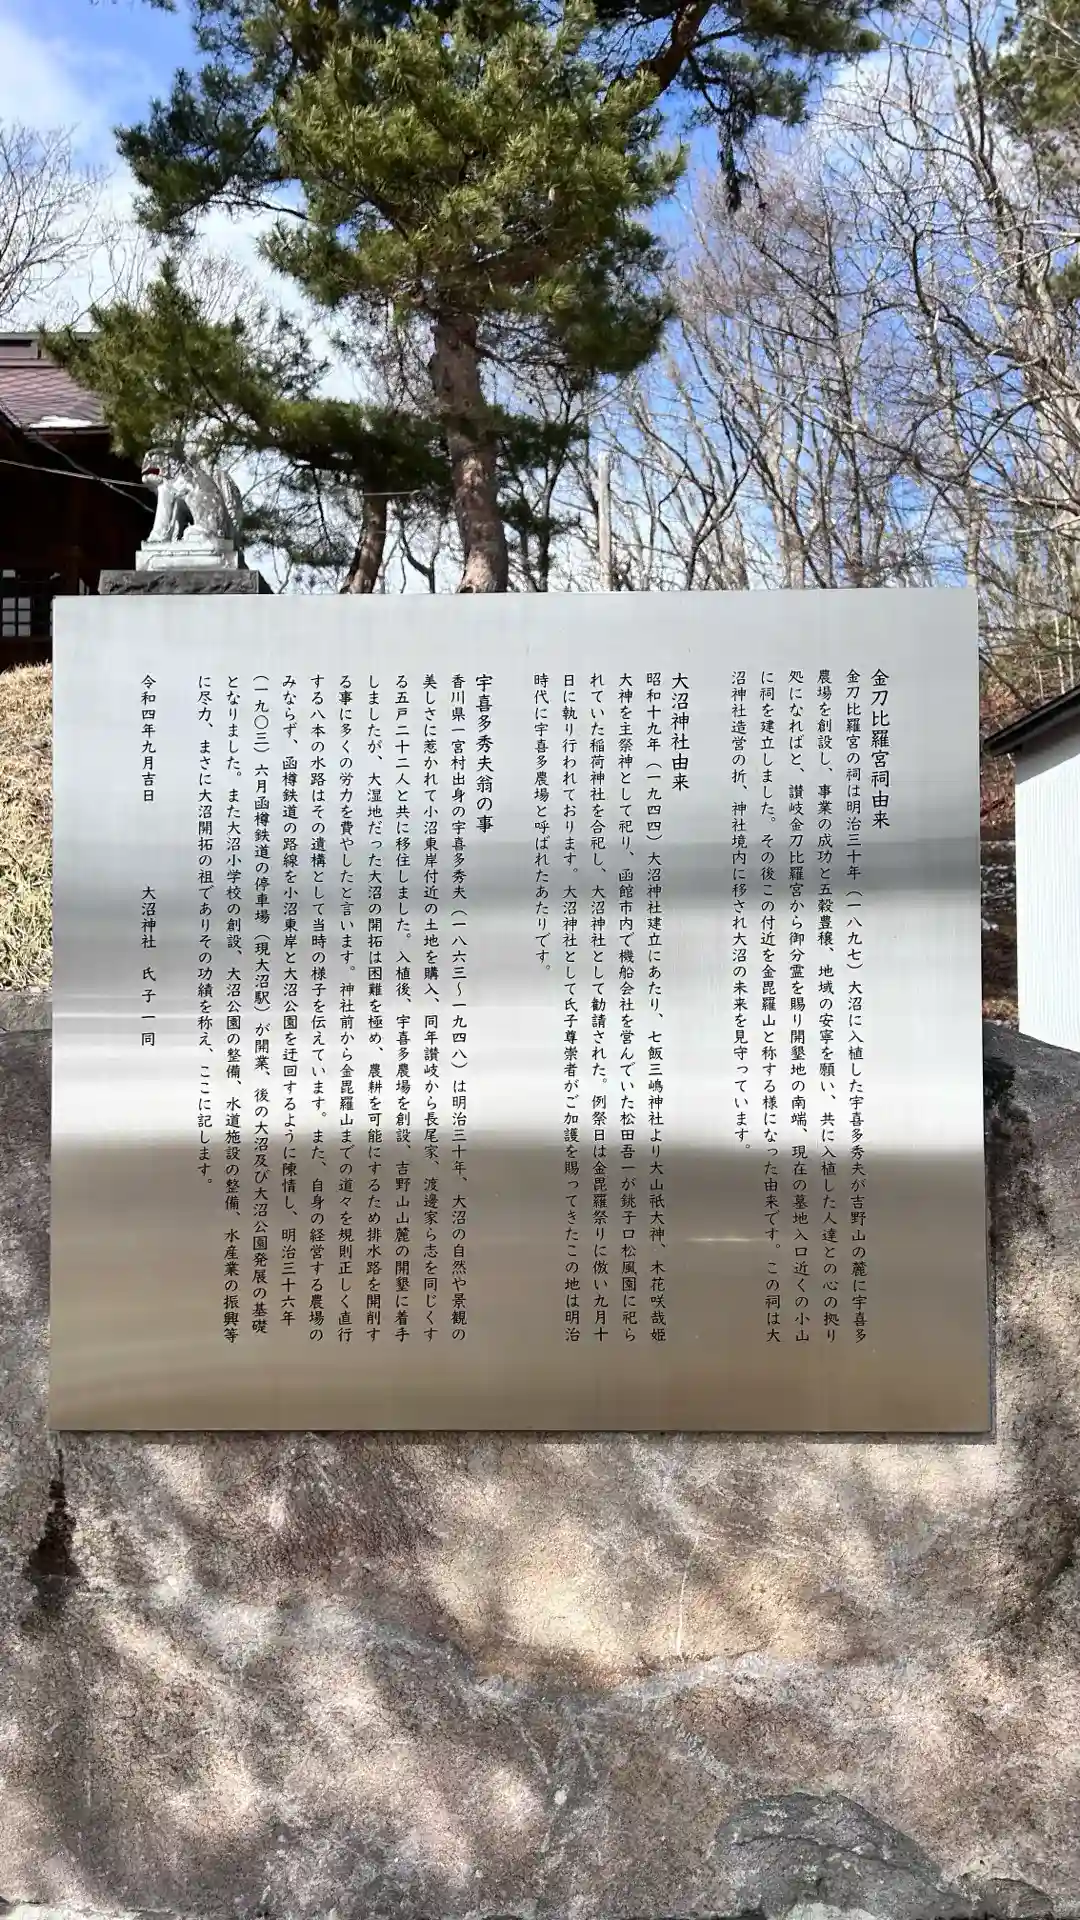 金刀比羅宮祠由来
金刀比羅宮の祠は明治三十年（一八九七）大沼に入植した宇喜多秀夫が吉野山の麓に宇喜多
農場を創設し、事業の成功と五穀豊穣、地域の安寧を願い、共に入植した人達との心の拠り
処になればと、讃岐金刀比羅宮から御分霊を賜り開墾地の南端、現在の墓地入口近くの小山
に祠を建立しました。その後この付近を金毘羅山と称する様になった由来です。この祠は大
沼神社造営の折、神社境内に移され大沼の未来を見守っています。
大沼神社由来
昭和十九年（一九四四）大沼神社建立にあたり、七飯三嶋神社より大山祇大神、木花咲哉姫
大神を主祭神として祀り、函館市内で機船会社を営んでいた松田吾一が銚子口松風園に祀ら
れていた稲荷神社を合祀し、大沼神社として勧請された。例祭日は金毘羅祭りに倣い九月十
日に執り行われております。大沼神社として氏子尊崇者がご加護を賜ってきたこの地は明治
時代に宇喜多農場と呼ばれたあたりです。
宇喜多秀夫翁の事
香川県一宮村出身の宇喜多秀夫（一八六三～一九四八）は明治三十年、大沼の自然や景観の
美しさに惹かれて小沼東岸付近の土地を購入、同年讃岐から長尾家、渡邊家ら志を同じくす
る五戸二十二人と共に移住しました。入植後、宇喜多農場を創設、吉野山山麓の開墾に着手
しましたが、大湿地だった大沼の開拓は困難を極め、農耕を可能にするため排水路を開削す
る事に多くの労力を費やしたと言います。神社前から金毘羅山までの道々を規則正しく直行
する八本の水路はての遺構として当時の様子を伝えています。また、自身の経営する農場の
みならず、函樽鉄道の路線を小沼東岸と大沼公園を迂回するように陳情し、明治三十六年
（一九〇三）六月函樽鉄道の停車場（現大沼駅）が開業、後の大沼及び大沼公園発展の基礎
となりました。また大沼小学校の創設、大沼公園の整備、水道施設の整備、水産業の振興等
に尽力、まさに大沼開拓の祖でありその功績を称え、ここに記します。
令和四年九月吉日　大沼神社　氏子一同